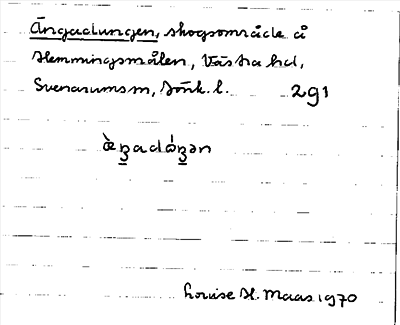 Ängadungen, skogsområde å
Hemmingsmålen, Västra hd,
Svenarumsm, Jönk. l. 291
Louise H. Maas 1970